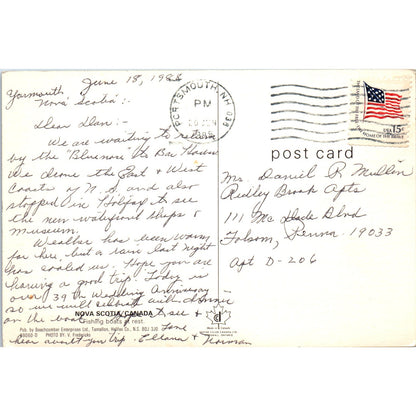 June 18, 1988
Yarmouth,
Nova Scotia:-
Dear Dan:-
We are waiting to return
by the "Bluenose" to Bar Harbor
We drove the East & West
Coasts of N.S. and also
stopped in Halifax to see
the new waterfront shops &
museum.
Weather has been warm
for here, but a rain last night
has cooled us. Hope you are
having a good trip. Today is
our 39th Wedding Anniversary -
so we will celebrate with dinner
on the boat. see &
hear about you trip. Love
& Norman
NOVA SCOTIA, CANADA
Fishing boats at rest.
Pub. by Beachcomber Enterprises Ltd., Tantallon, Halifax Co., N.S. B0J 3J0
PHOTO BY: V. Fredericks
PORTSMOUTH, NH 038
PM
USA 15c
post card
Mr. Daniel R Mullin
Ridley Brook Apts
111 Mc Dade Blvd
Folsom, Penna 19033
Apt D-206